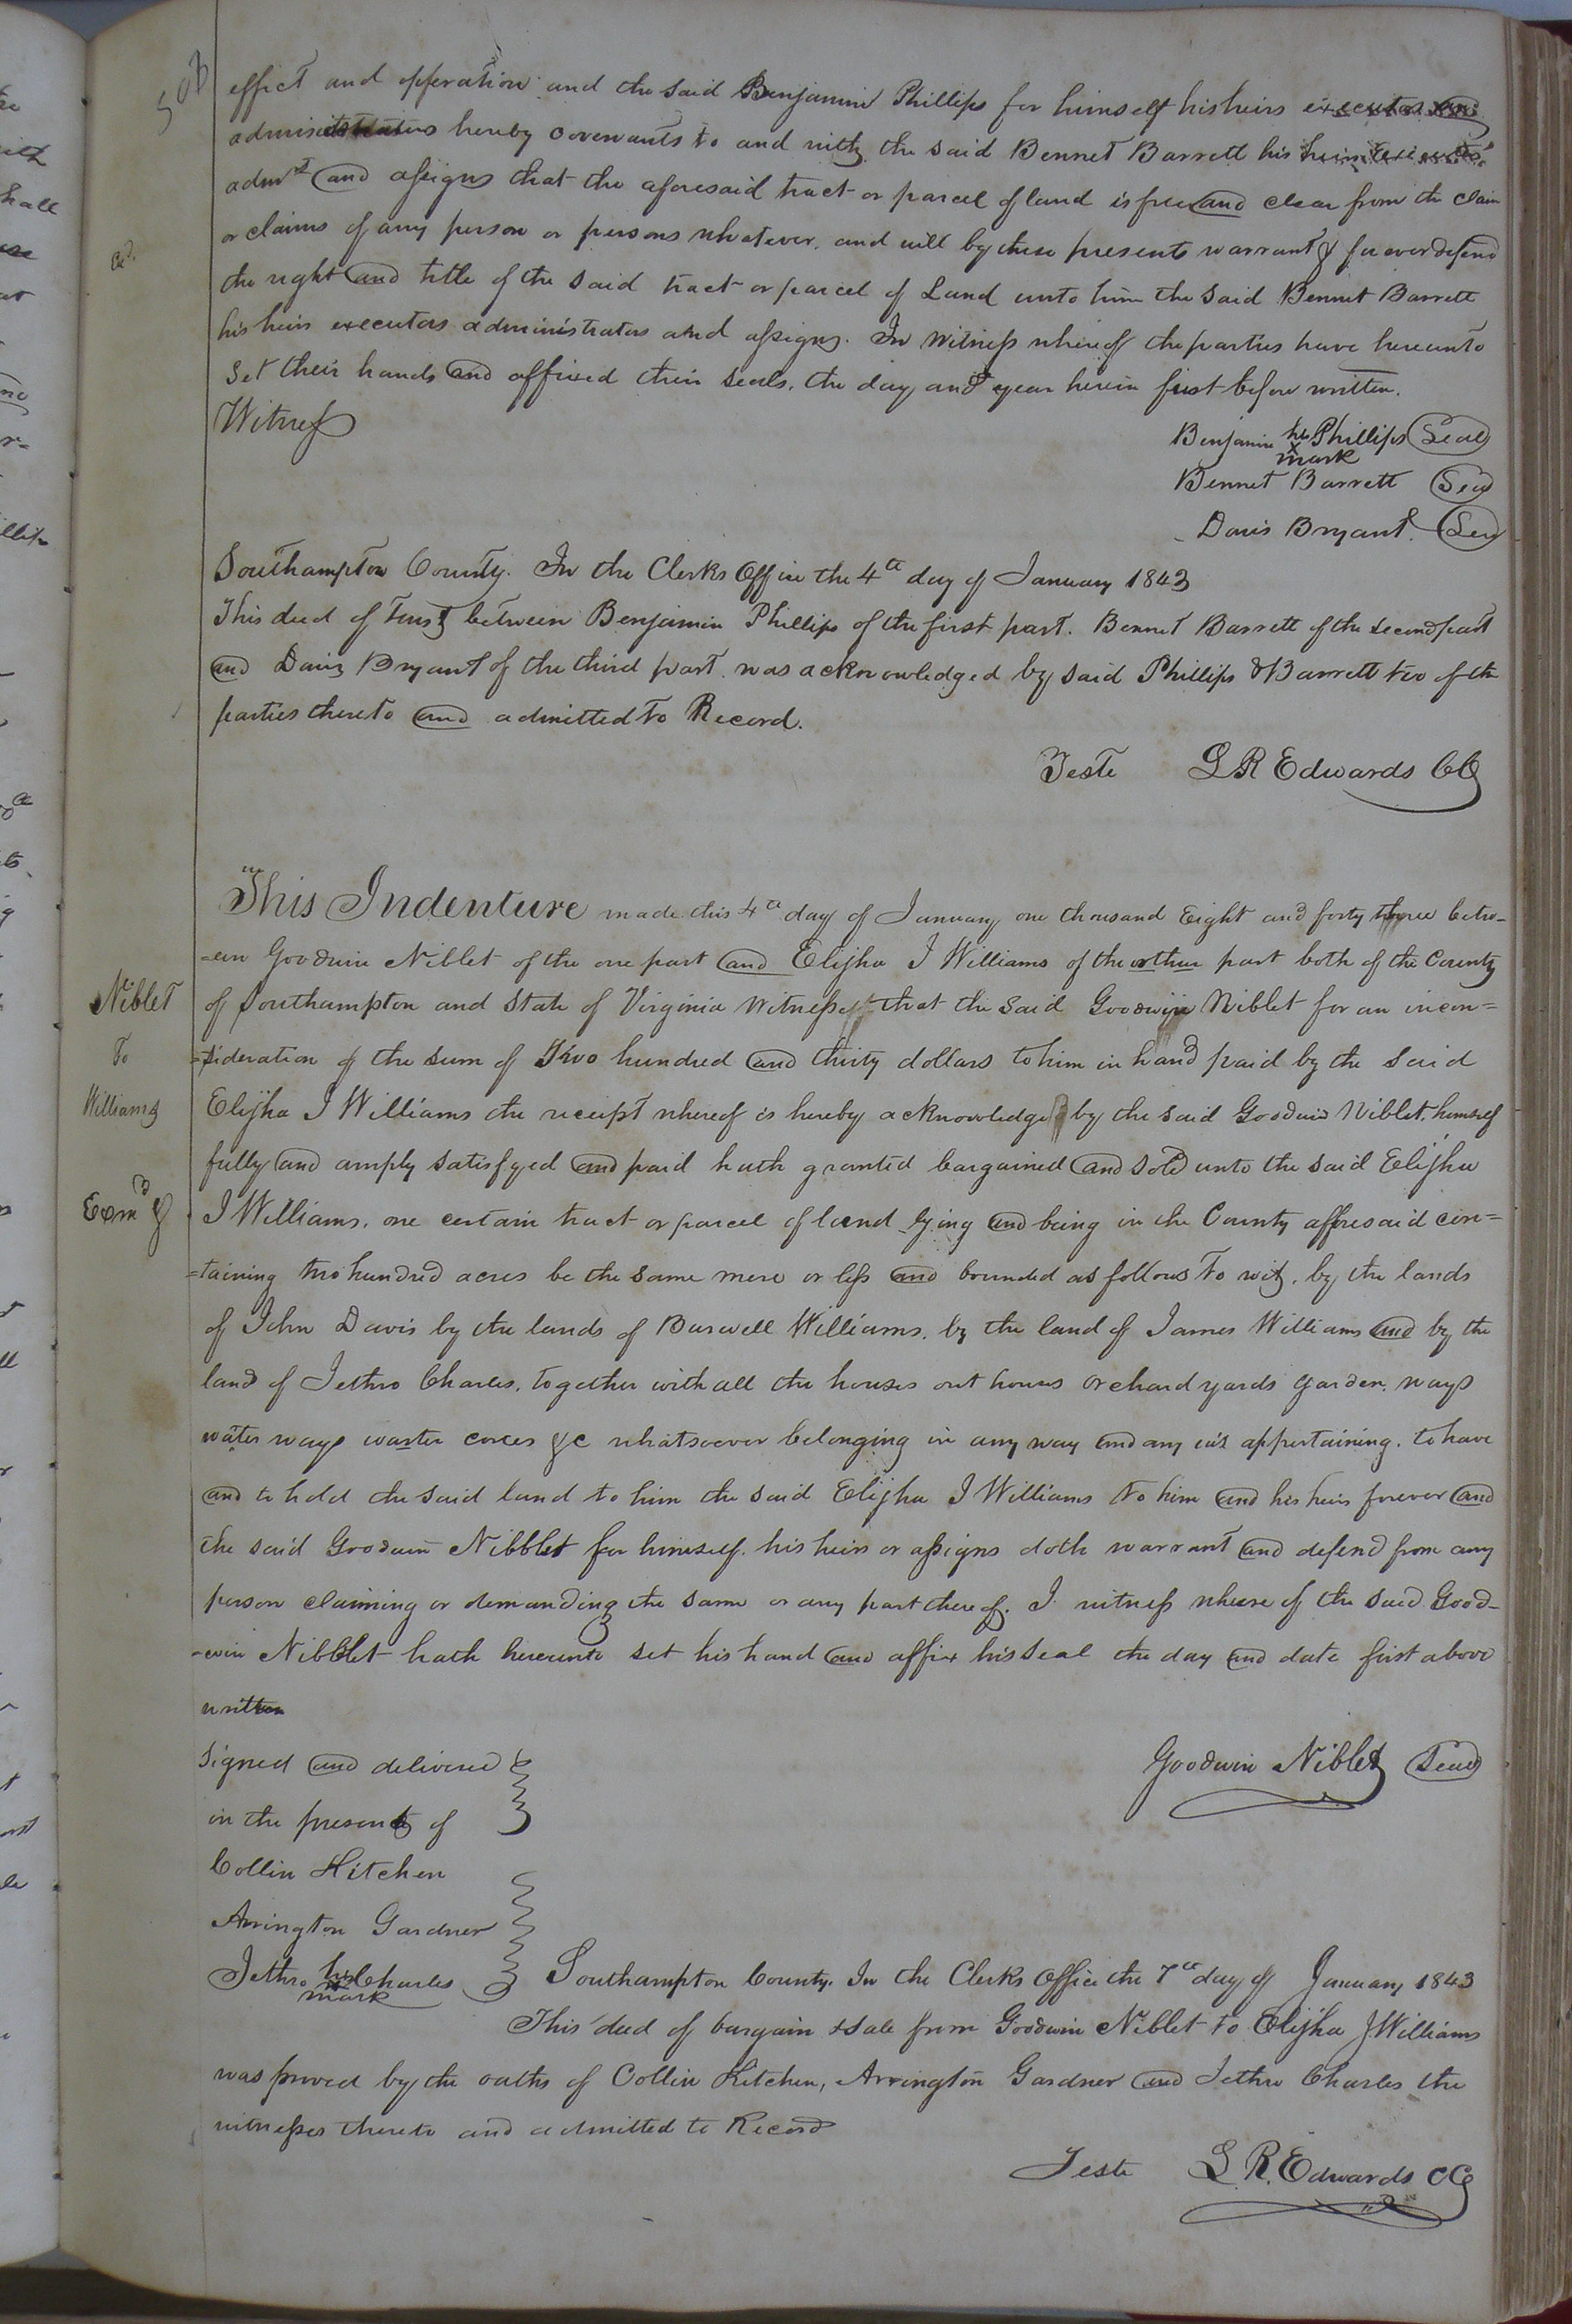 effect and opperation and the said Benjamin Phillips for himself his heirs executors and
administrators hereby covenants to and with the said Bennet Barrett his heirs executs
admrs and assigns that the aforesaid tract or parcel of land is free and clear from the claim
or claims of any person or persons whatever. and will by these presents warrant & forever defend
the right and title of the said tract or parcel of Land unto him the said Bennet Barrett
his heirs executors administrators and assigns. In Witness whereof the parties have hereunto
set their hands and affixed their seals. the day and year herein first before written.
Witness
Benjamin his Phillips Seal
x
mark
Bennet Barrett Seal
Davis Bryant. Seal
Southampton County. In the Clerks Office the 4th day of January 1843
This deed of Trust between Benjamin Phillips of the first part. Bennet Barrett of the second part
and Davis Bryant of the third part. was acknowledged by said Phillips & Barrett two of the
parties thereto and admitted to Record.
Teste L R Edwards CC
This Indenture made this 4th day of January one thousand Eight and forty three betw-
-een Goodwin Niblet of the one part and Elijha J Williams of the other part both of the County
Niblet
of Southampton and State of Virginia Witnesseth that the said Goodwin Niblet for an incon=
To
=sideration of the sum of Two hundred and thirty dollars to him in hand paid by the said
Williams
Elijha J Williams the receipt whereof is hereby acknowledged by the said Goodwin Niblet. himself
fully and amply satisfyed and paid hath granted bargained and sold unto the said Elijha
Exmd &
J Williams. one certain tract or parcel of land lying and being in the County afforesaid con=
=taining two hundred acres be the same more or less and bounded as follows to wit. by the lands
of John Davis by the lands of Burwell Williams. by the land of James Williams and by the
land of Jethro Charles. together with all the houses out houses orchard yards garden. ways
water ways waster corces &c whatsoever belonging in any way and any wis appertaining. to have
and to hold the said land to him the said Elijha J Williams to him and his heirs forever and
the said Goodwin Nibblet for himself. his heirs or assigns doth warrant and defend from any
person claiming or demanding the same or any part thereof. I witness whereof the said Good-
-win Nibblet hath hereunto set his hand and affix his seal the day and date first above
written
Signed and delivered
Goodwin Niblet Seal
in the presents of
Collin Kitchen
Arrington Gardner
Jethro his Charles
x
mark
Southampton County. In the Clerks Office the 7th day of January 1843
This deed of bargain & sale from Goodwin Niblet to Elijha J Williams
was proved by the oaths of Collin Kitchen, Arrington Gardner and Jethro Charles the
witnesses thereto and admitted to Record
Teste L R. Edwards CC